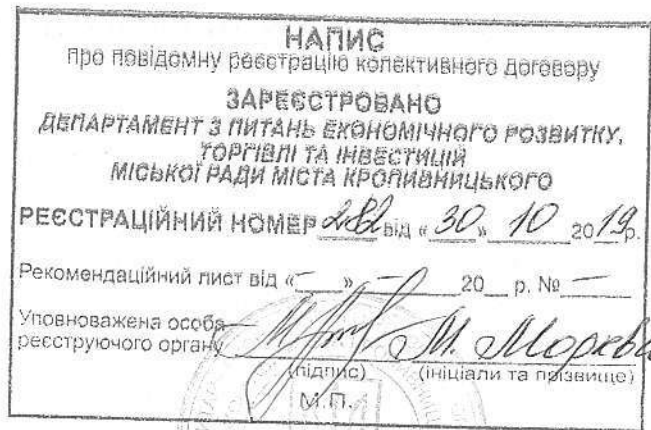 НАПИС
про повідомну реєстрацію колективного договору
ЗАРЕЄСТРОВАНО
ДЕПАРТАМЕНТ З ПИТАНЬ ЕКОНОМІЧНОГО РОЗВИТКУ,
ТОРГІВЛІ ТА ІНВЕСТИЦІЙ
МІСЬКОЇ РАДИ МІСТА КРОПИВНИЦЬКОГО
РЕЄСТРАЦІЙНИЙ НОМЕР 282 від « 30 » 10 2019 р.
Рекомендаційний лист від «–» – 20__ р. № –
Уповноважена особа
реєструючого органу М.
(підпис) (ініціали та прізвище)
М.П.